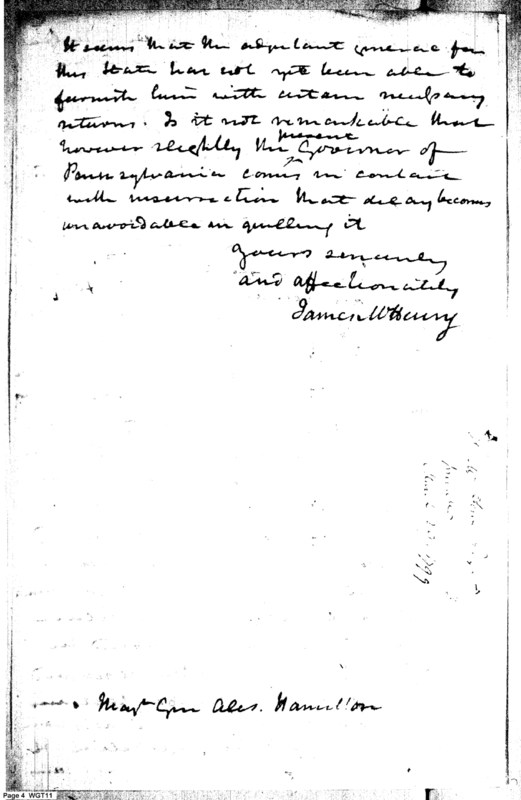 It seems that the adjutant general for
this State has not yet been able to
furnish him with certain necessary
returns. Is it not remarkable that
however slightly the present Governor of
Pennsylvania comes in contact
with insurrection that delay becomes
unavoidable in quelling it
Yours sincerely
and affectionately
James McHenry
1799
Majr Gen Alex. Hamilton
Page 4 WGT11